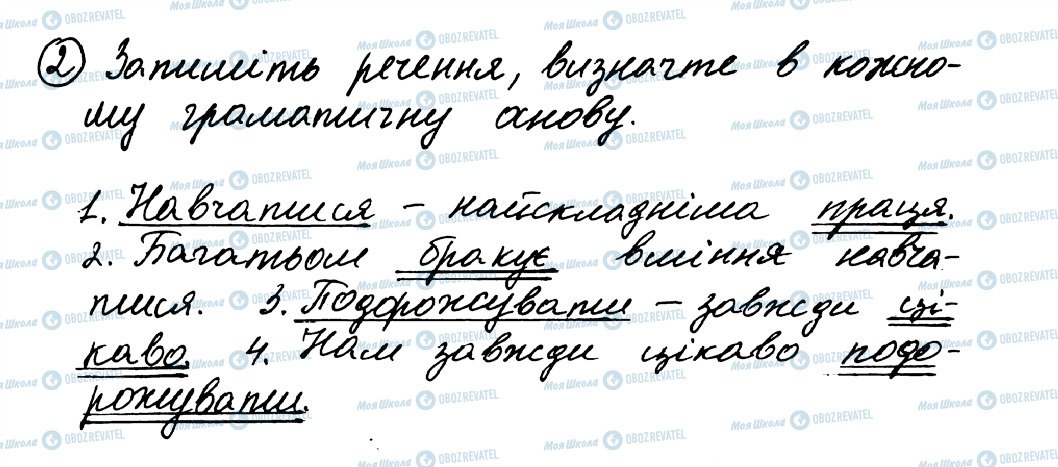 2 Запишіть речення, визначте в кожно-
му граматичну основу.
1. Навчатися – найскладніша праця.
2. Багатьом бракує вміння навча-
тися. 3. Подорожувати – завжди ці-
каво. 4. Нам завжди цікаво подо-
рожувати.